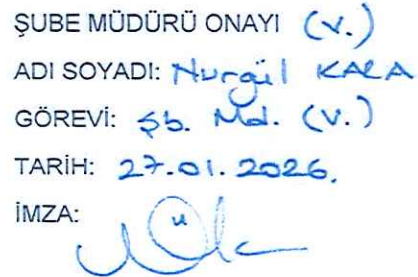 ŞUBE MÜDÜRÜ ONAYI (V.)
ADI SOYADI: Nurgül KARA
GÖREVİ: Şb. Md. (V.)
TARİH: 27.01.2026.
İMZA: